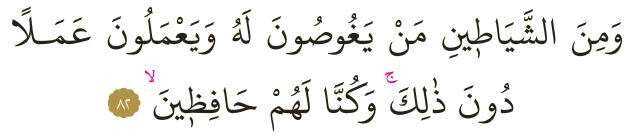 وَمِنَ الشَّيَاطٖينِ مَنْ يَغُوصُونَ لَهُ وَيَعْمَلُونَ عَمَـلًا
دُونَ ذٰلِكَۚ وَكُنَّا لَهُمْ حَافِظٖينَۙ ٨٢